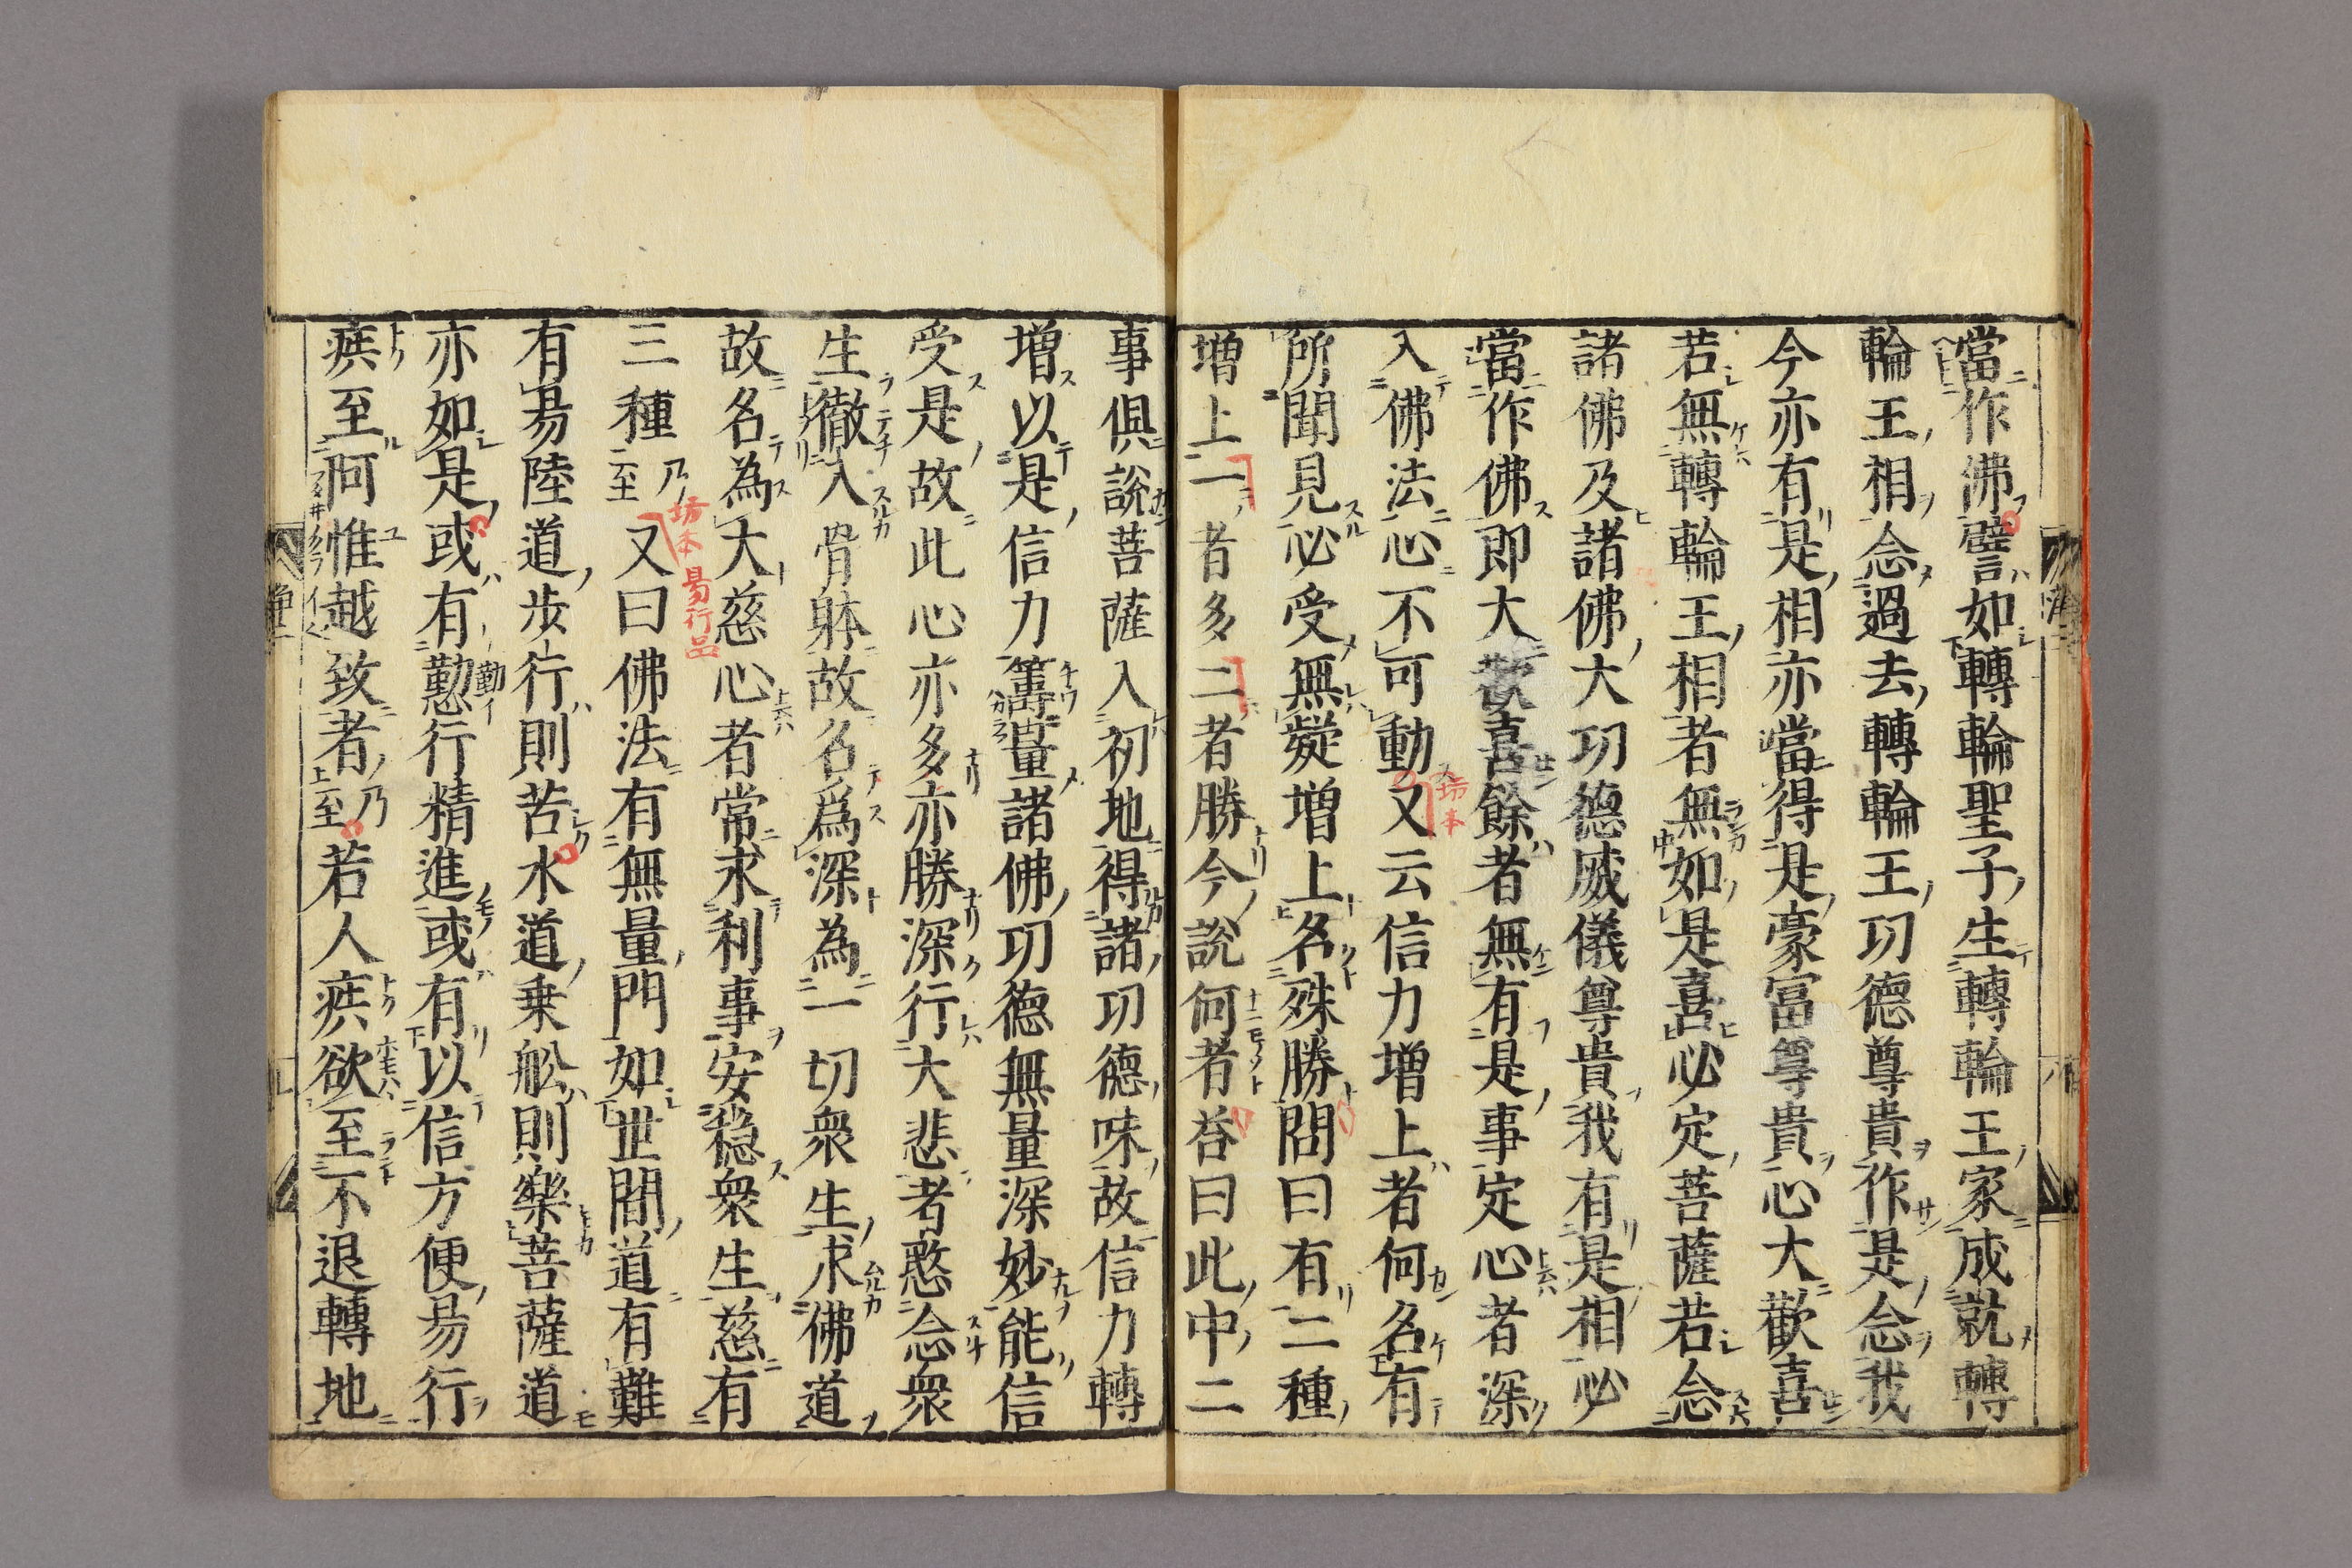 當作佛譬如轉輪聖子生轉輪王家成就轉
輪王相念過去轉輪王功德尊貴作是念我
今亦有是相亦當得是豪富尊貴心大歡喜
若無轉輪王相者無如是喜必定菩薩若念
諸佛及諸佛大功德威儀尊貴我有是相必
當作佛即大歡喜餘者無有是事定心者深
入佛法心不可動又云信力增上者何名有
所聞見必受無疑增上名殊勝問曰有二種
增上一者多二者勝今說何者荅曰此中二
事俱說菩薩入初地得諸功德味故信力轉
增以是信力籌量諸佛功德無量深妙能信
受是故此心亦多亦勝深行大悲者愍念衆
生徹入骨躰故名爲深為一切衆生求佛道
故名為大慈心者常求利事安穩衆生慈有
三種乃至又曰佛法有無量門如世間道有難
有易陸道步行則苦水道乗舩則樂菩薩道
亦如是或有懃行精進或有以信方便易行
疾至阿惟越致者乃至若人疾欲至不退轉地
坊本
易行品
坊本
勤イ